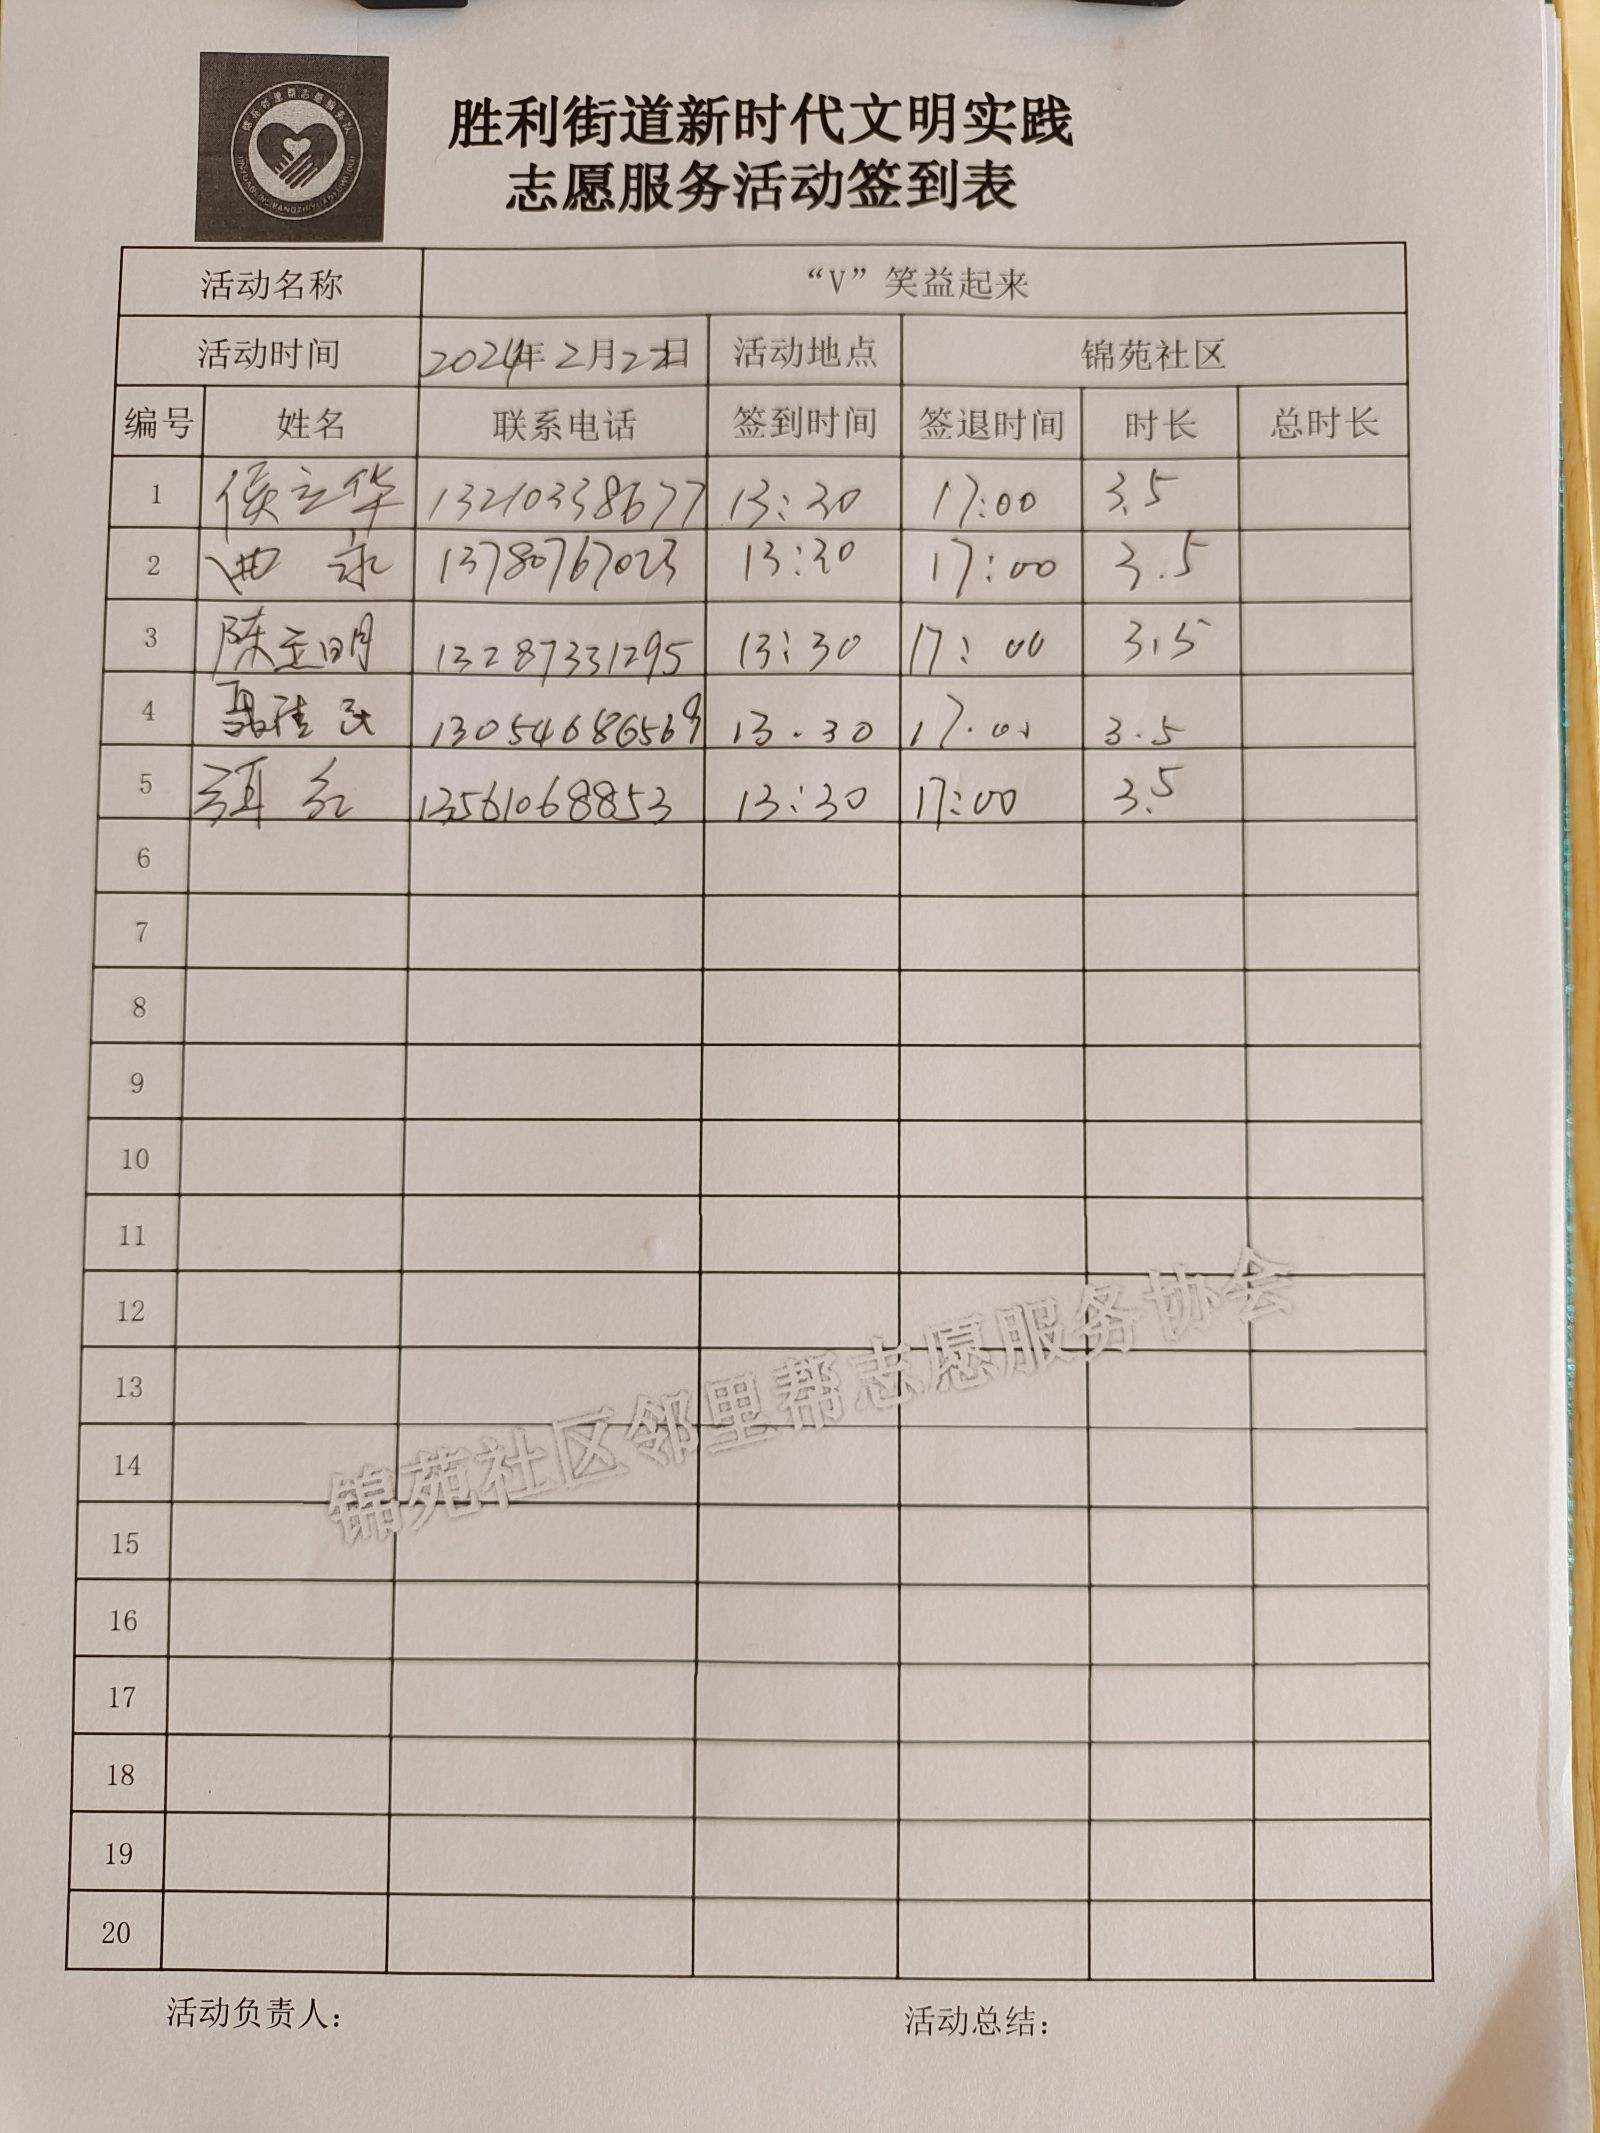 胜利街道新时代文明实践
志愿服务活动签到表
活动名称 “V”笑益起来
活动时间 2024年2月22日 活动地点 锦苑社区
编号 姓名 联系电话 签到时间 签退时间 时长 总时长
1 侯立华 13210338677 13:30 17:00 3.5
2 曲永 13780767023 13:30 17:00 3.5
3 陈玉明 13287331295 13:30 17:00 3.5
4 聂桂民 13054686569 13.30 17.00 3.5
5 红 13561068853 13:30 17:00 3.5
6
7
8
9
10
11
12
13
14
15
16
17
18
19
20
锦苑社区邻里帮志愿服务协会
活动负责人：
活动总结：